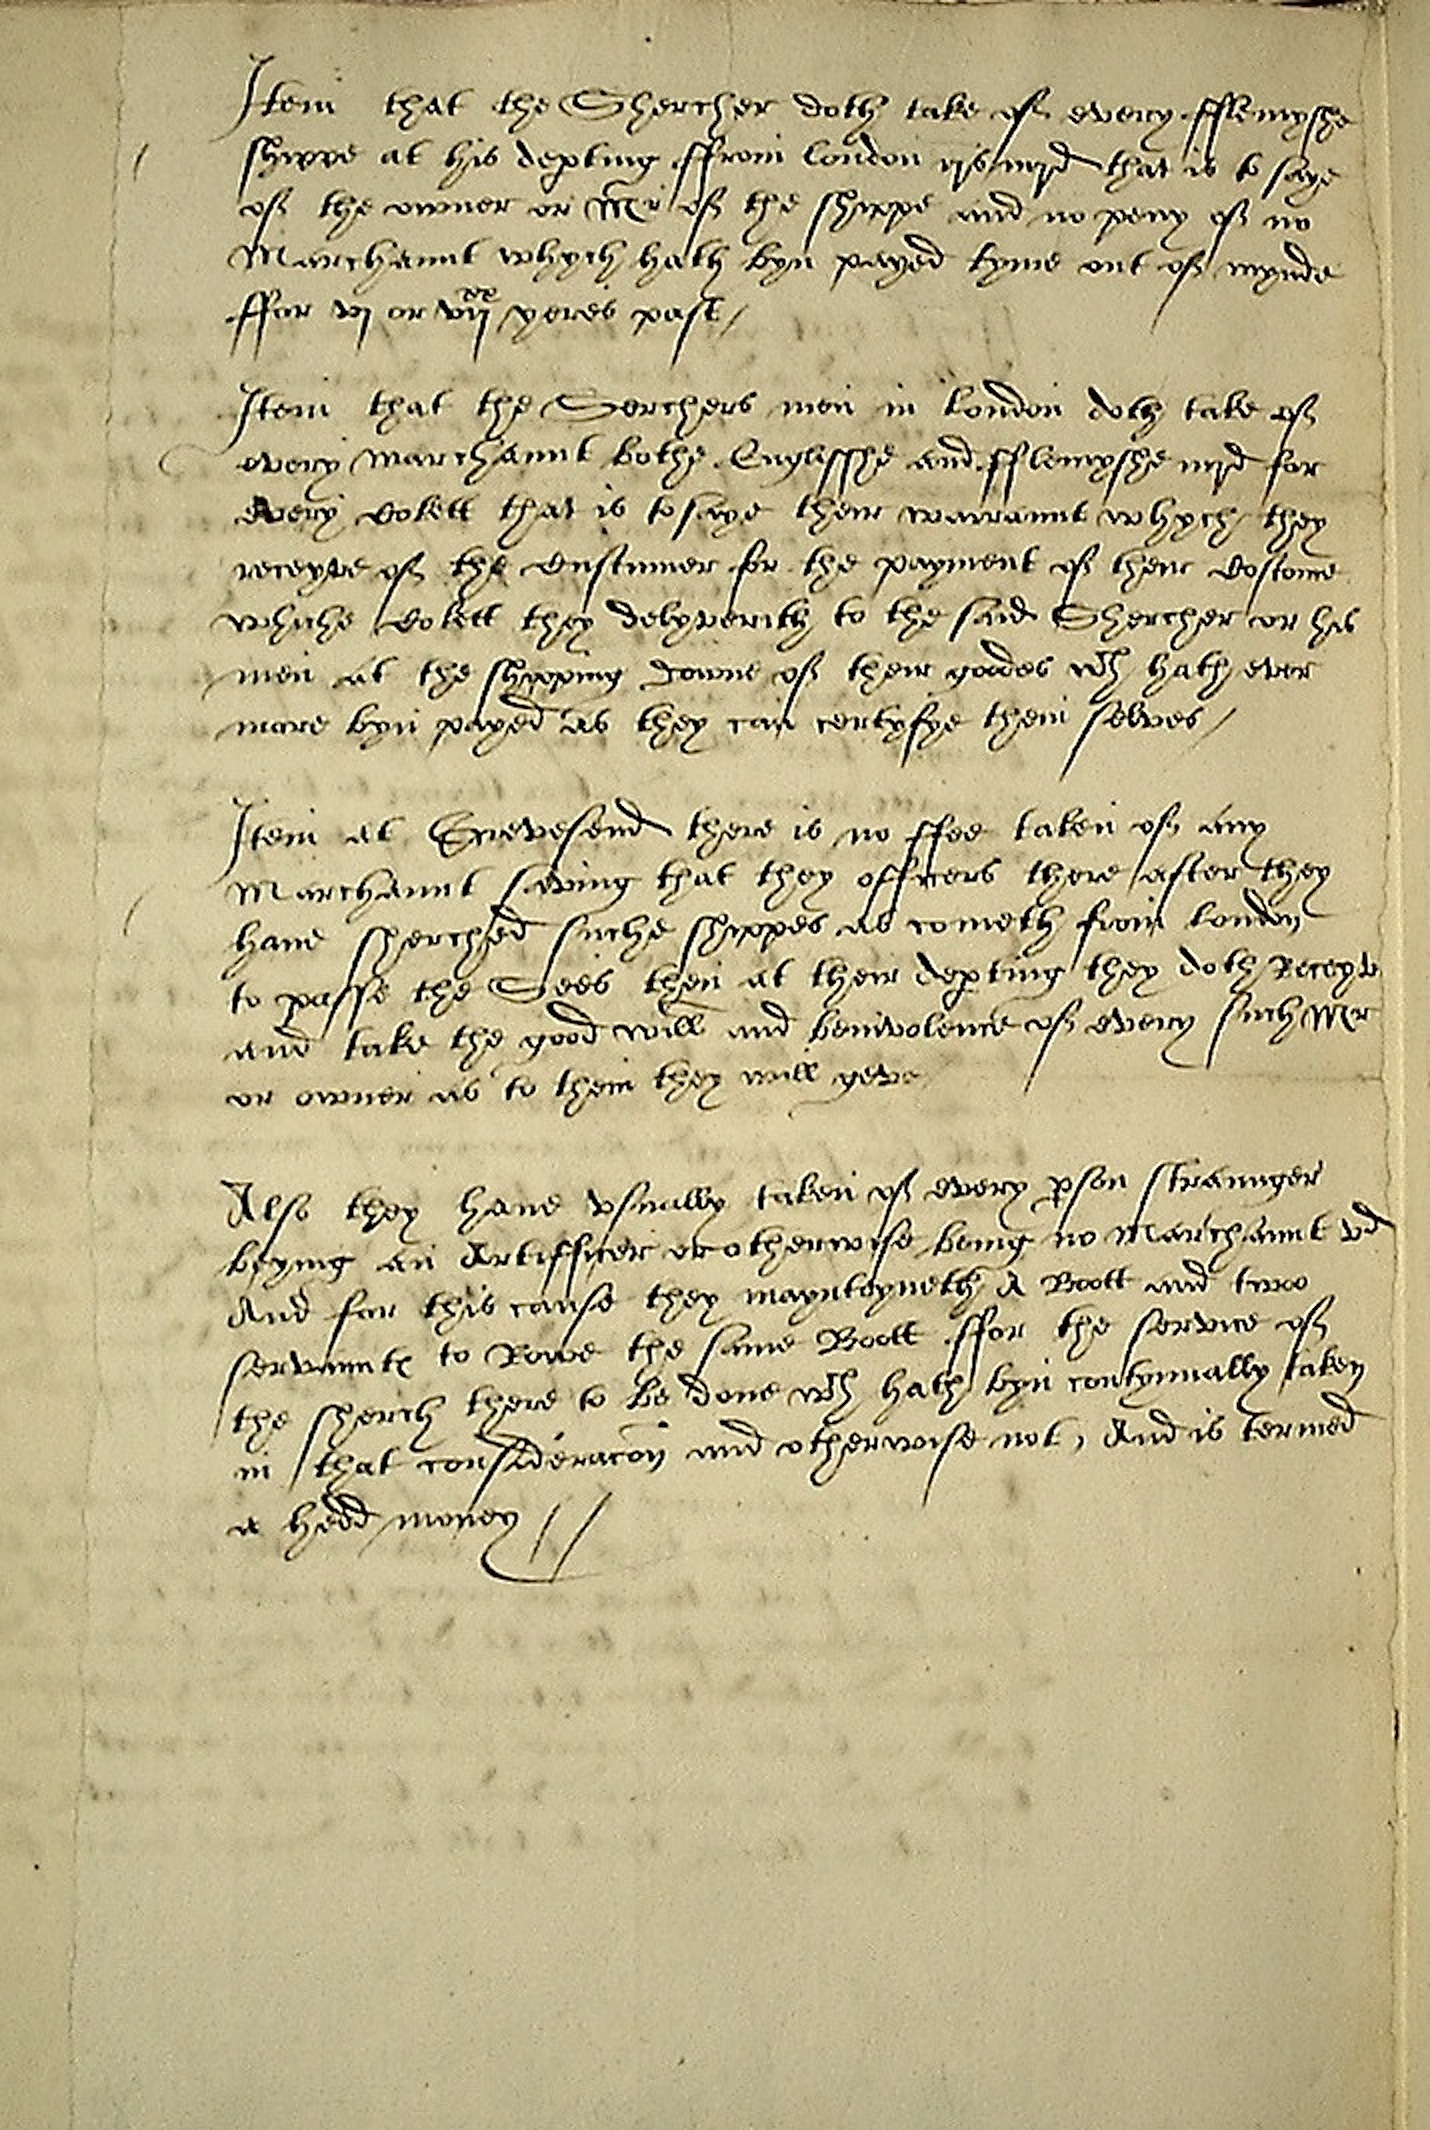 Item that the Shercher doth take of every fflemyshe
shippe at his depting ffrom london ijs iiijd that is to saye
of the owner or Mr of the shippe and no peny of no
Marchaunt whych hath byn payed tyme out of mynde
ffor vj or vijxx yeres past /
Item that the Serchers men in london doth take of
every marchaunt bothe Englisshe and fflemyshe iiijd for
every Cokett that is to saye their warraunt whych they
receyve of the Custumer for the payment of their Costome
whiche Cokett they delyverith to the said Shercher or his
men at the shipping downe of their goodes wch hath ever
more byn payed as they can certyfye them selves /
Item at Grevesend there is no ffee taken of any
Marchaunt saving that they officers there after they
have sherched suche shippes as cometh from london
to passe the Sees then at their depting they doth Receyve
and take the good will and benivolence of every such Mr
or owner as to them they will geve
Also they have usually taken of every pson straunger
beying an Artifficer or otherwise being no Marchaunt vd
And for this cause they maynteyneth A Boott and twoo
servaunts to Rowe the same Boott ffor the service of
the sherch there to be done wch hath byn contynually taken
in that consideracon and otherwise not, And is termed
a hedd money //